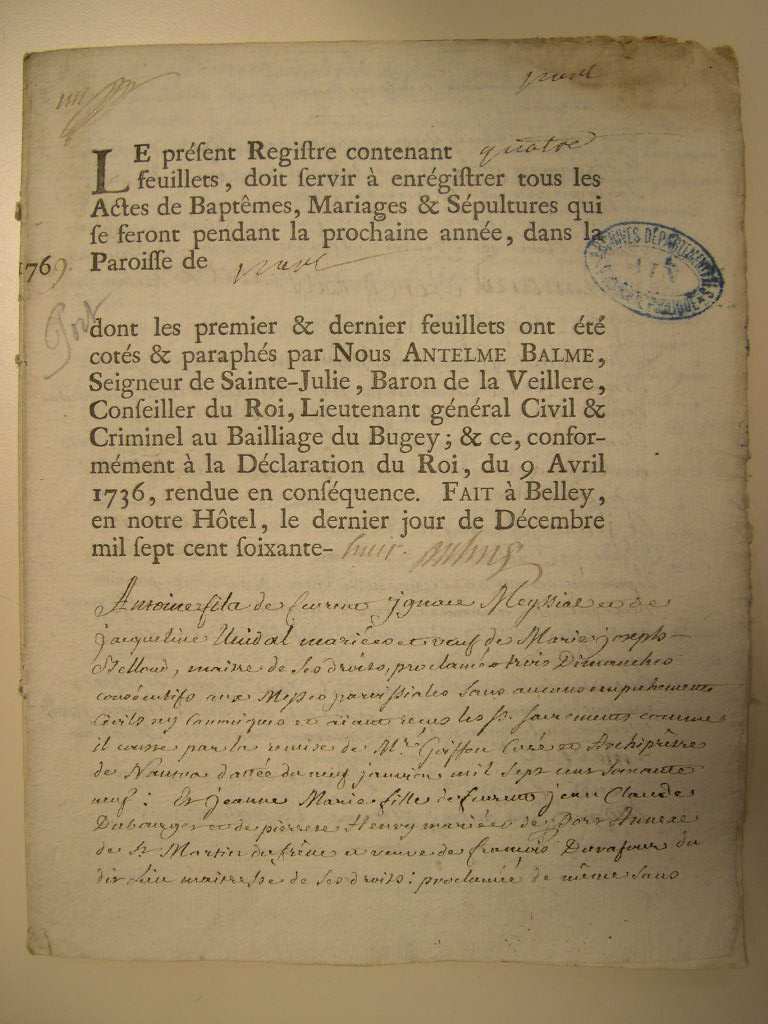 port
LE préſent Regiſtre contenant quatre
feuillets, doit ſervir à enrégiſtrer tous les
Actes de Baptêmes, Mariages & Sépultures qui
ſe feront pendant la prochaine année, dans la
1769. Paroiſſe de port
ARCHIVES DÉPARTEMENTALES
Port
dont les premier & dernier feuillets ont été
cotés & paraphés par Nous ANTELME BALME,
Seigneur de Sainte-Julie, Baron de la Veillere,
Conſeiller du Roi, Lieutenant général Civil &
Criminel au Bailliage du Bugey; & ce, confor-
mément à la Déclaration du Roi, du 9 Avril
1736, rendue en conſéquence. FAIT à Belley,
en notre Hôtel, le dernier jour de Décembre
mil ſept cent ſoixante-huit.
Antoine fils de feurent ignace Meyssiat et de
jacqueline Vuidal mariés et veuf de Marie joseph
maitre de ses droits, proclamé trois Dimanches
consecutifs aux Messes parroissiales sans aucun empechement
Civils ny Canoniques et aiant recus les sts. sacrements comme
il conste par la remise de Mr. Goiffon Curé et Archiprêtre
de Nantua dattée du neuf janvier mil sept cens soixante
neuf : Et jeanne Marie fille de feurent jean Claude
Dubourget et de pierrete Henry mariés de port Annexe
de St. Martin du frêne et veuve de françois Davafour du
dit lieu maitresse de ses droits : proclamée de même sans